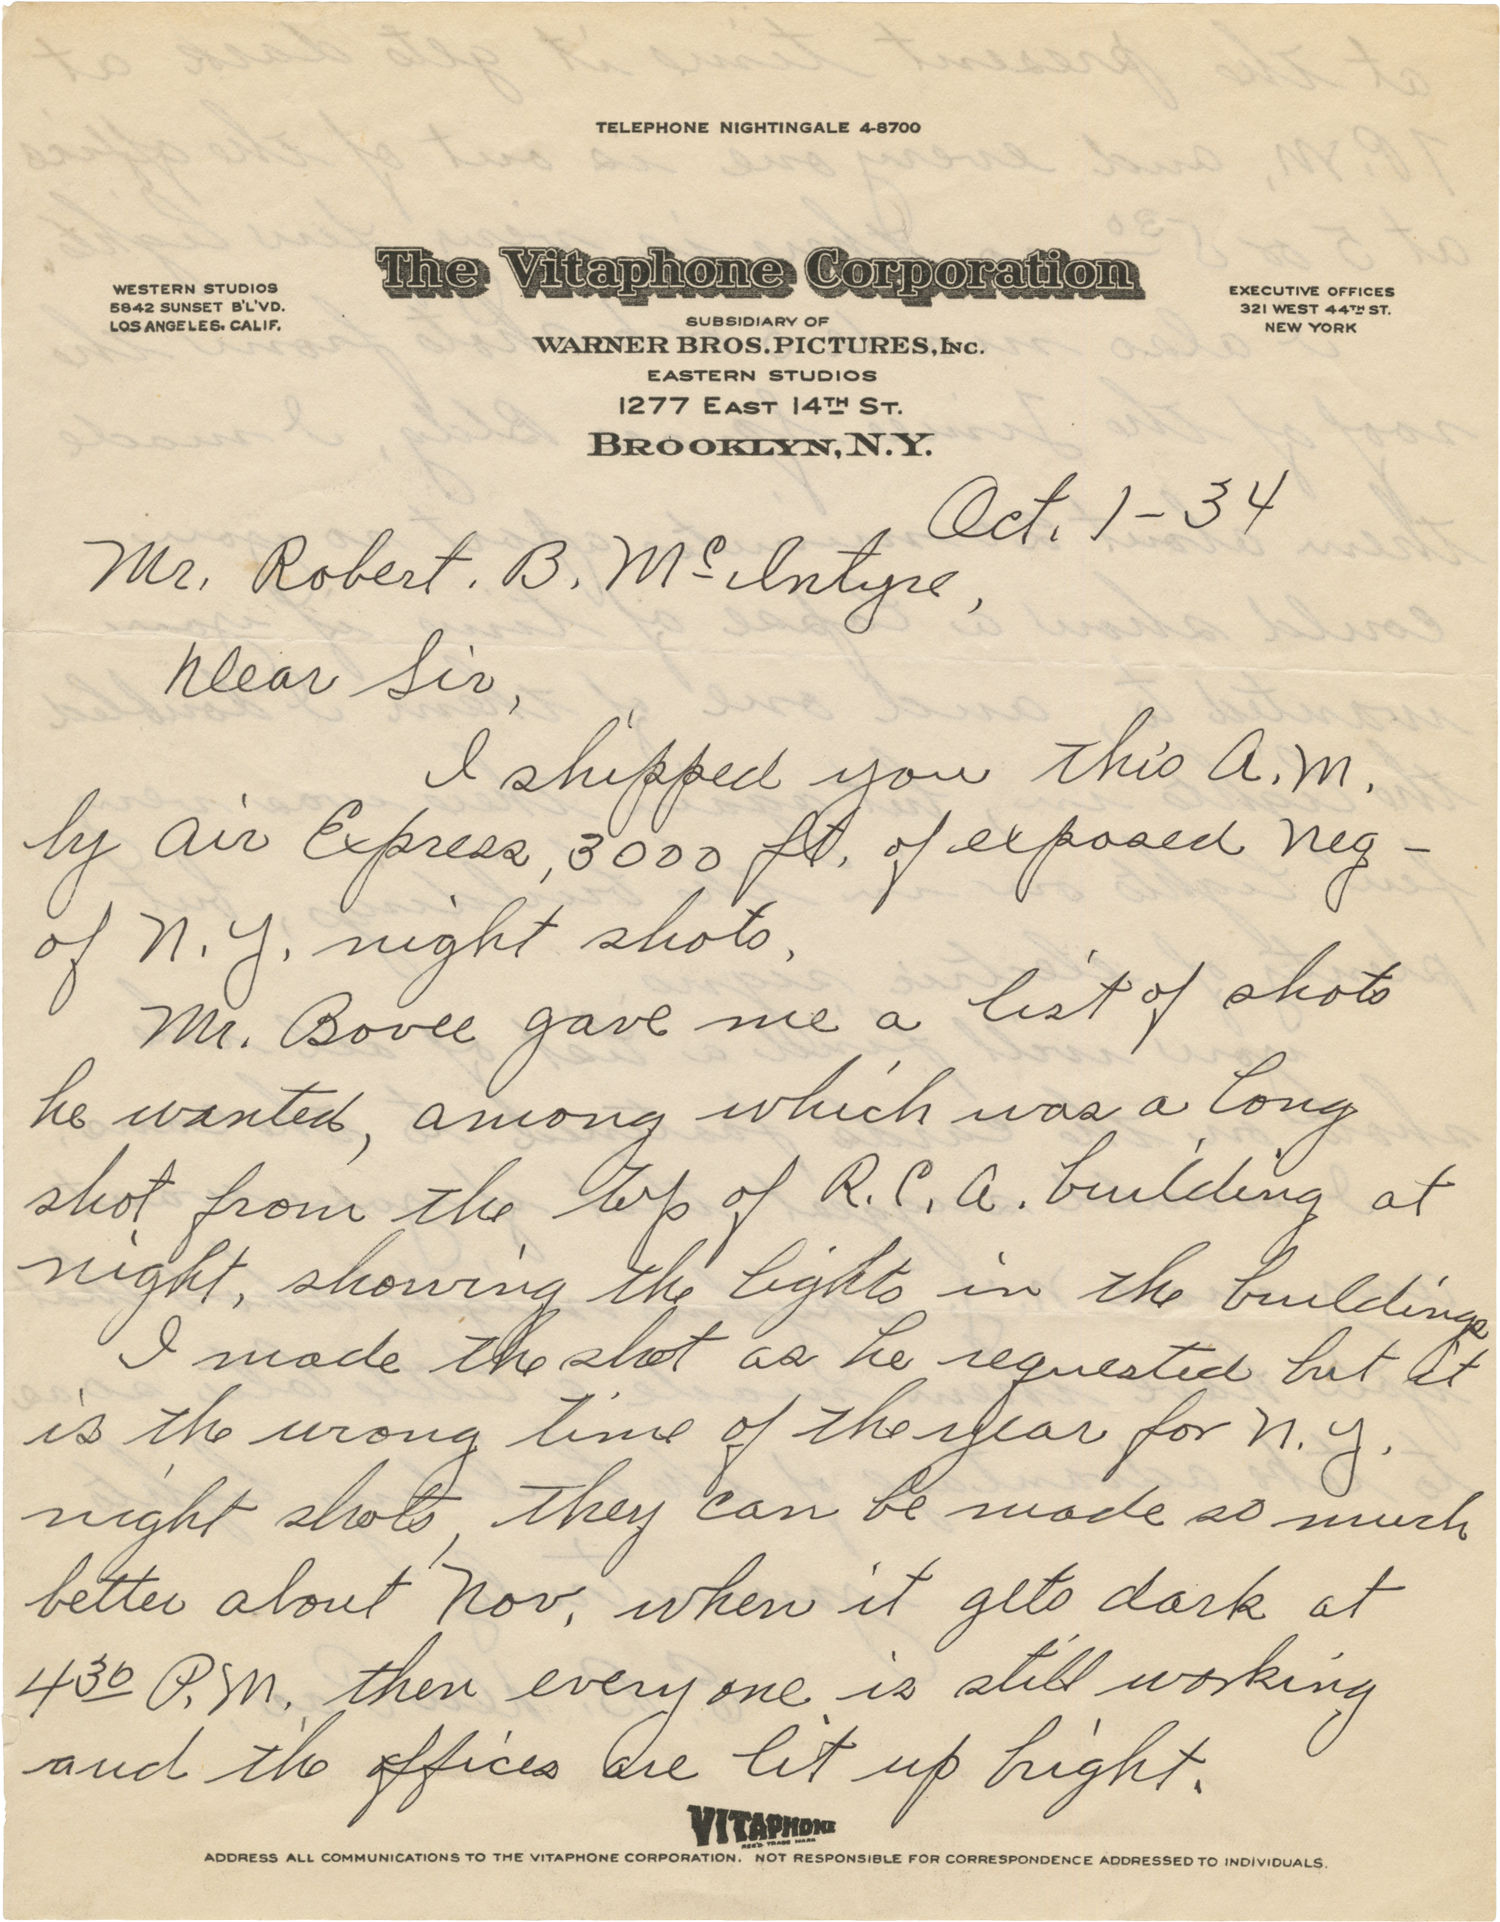 TELEPHONE NIGHTINGALE 4-8700
The Vitaphone Corporation
WESTERN STUDIOS
5842 SUNSET B'L'VD.
LOS ANGELES, CALIF.
SUBSIDIARY OF
WARNER BROS. PICTURES, INC.
EASTERN STUDIOS
1277 EAST 14TH ST.
BROOKLYN, N.Y.
EXECUTIVE OFFICES
321 WEST 44TH ST.
NEW YORK
Oct. 1-34
Mr. Robert. B. McIntyre,
Dear Sir,
I shipped you this A.M.
by Air Express, 3000 ft. of exposed Neg-
of N.Y. night shots.
Mr. Bovee gave me a list of shots
he wanted, among which was a long
shot from the top of R.C.A. building at
night, showing the lights in the buildings
I made the shot as he requested but it
is the wrong time of the year for N.Y.
night shots, they can be made so much
better about Nov. when it gets dark at
430 P.M. then everyone is still working
and the offices are lit up bright.
VITAPHONE
REG'D. TRADE MARK
ADDRESS ALL COMMUNICATIONS TO THE VITAPHONE CORPORATION. NOT RESPONSIBLE FOR CORRESPONDENCE ADDRESSED TO INDIVIDUALS.